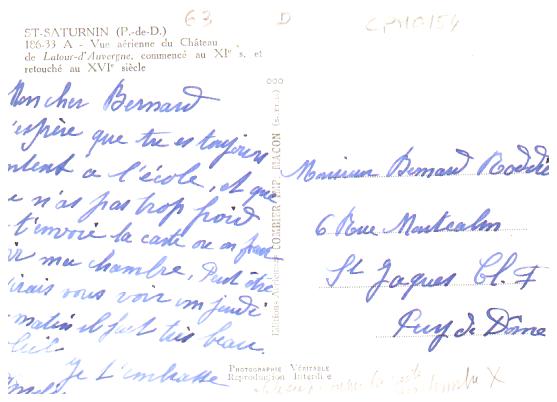 63 D CPM0154
ST-SATURNIN (P.-de-D.)
186-33 A - Vue aérienne du Château
de Latour-d'Auvergne, commencé au XIe s. et
retouché au XVIe siècle
Mon cher Bernard
'espère que tu es toujours
ntent à l'école, et que
e n'as pas trop froid
t'envoie la carte ou on peut
ir ma chambre, Peut être
irais vous voir un jeudi
matin il fait très beau.
leil
Je t'embrasse
Monsieur Bernard
6 Rue Montcalm
St Jaques Cl. F
Puy de Dôme
Editions COMBIER IMP. MACON
PHOTOGRAPHIE VÉRITABLE
Reproduction Interdite